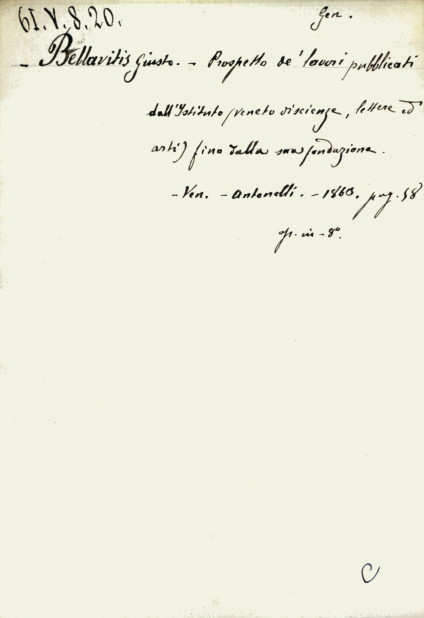 61.V.8.20.
Gen.
- Bellavitis Giusto. - Prospetto de' lavori pubblicati
dall'Istituto (veneto di scienze, lettere ed
arti) fino dalla sua fondazione.
- Ven. - Antonelli. - 1863. pag. 58
op. in - 8°.
C